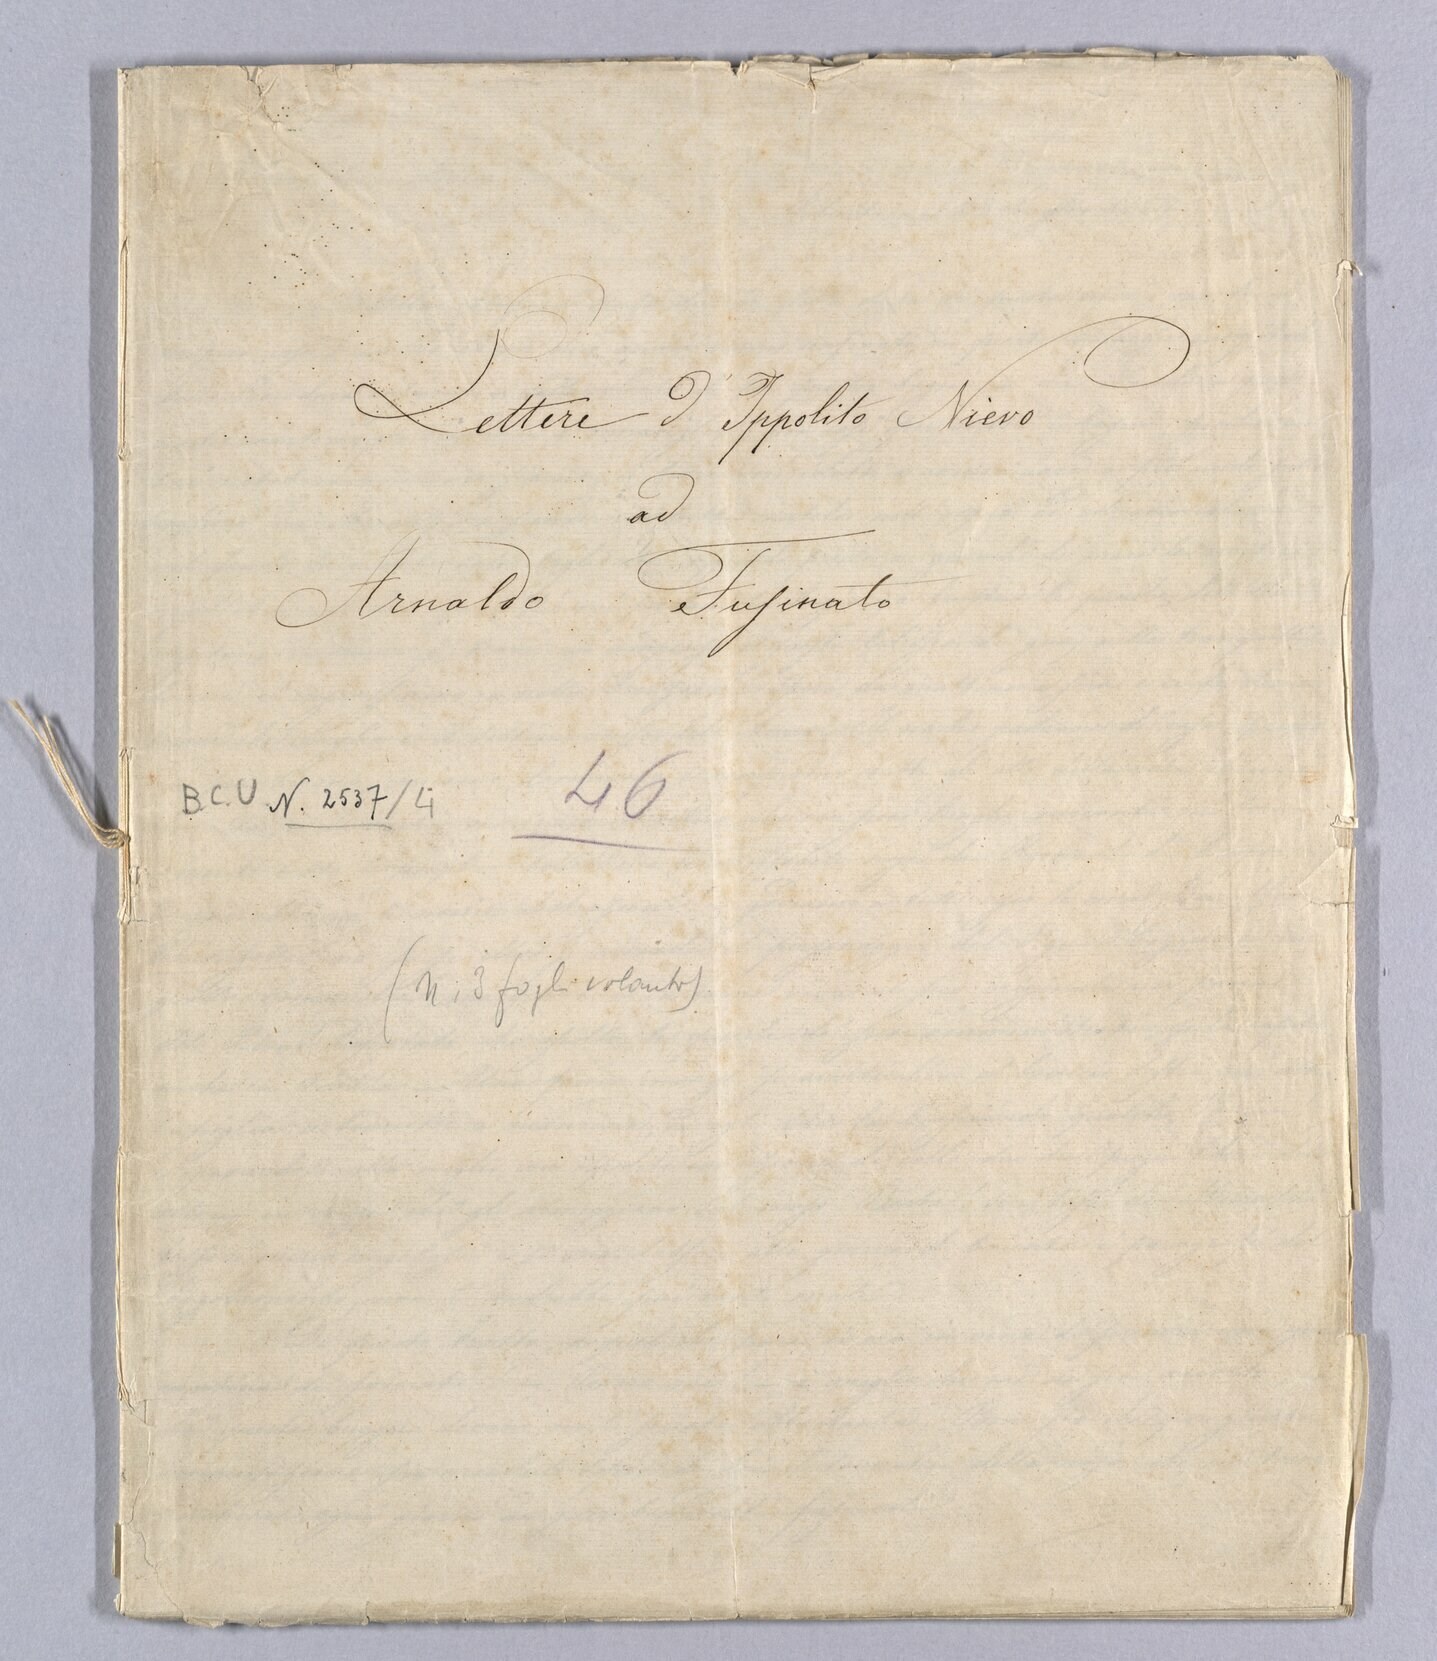 Lettere d'Ippolito Nievo
ad
Arnaldo Fusinato
B.C.U N. 2537/4 46
(N. 3 fogli volanti)